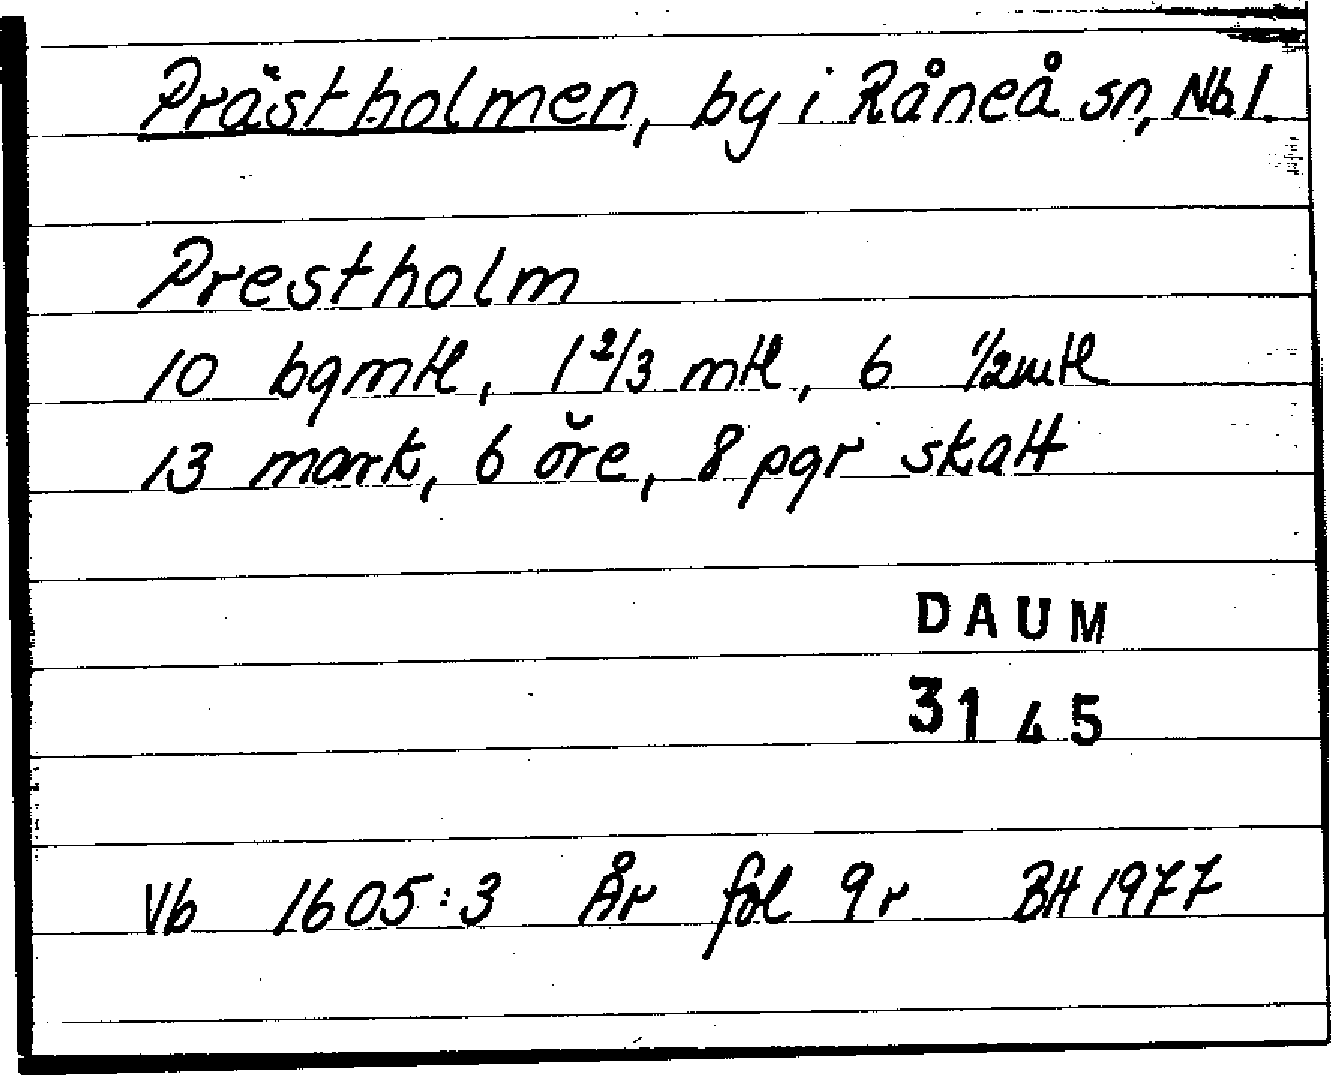 Prästholmen, by i Råneå sn, Nb l.
Prestholm
10 bgmtl, 1 2/3 mtl, 6 1/2mtl
13 mark, 6 öre, 8 pgr skatt
DAUM
3145
Vb 1605:3 År fol 9r BH 1977